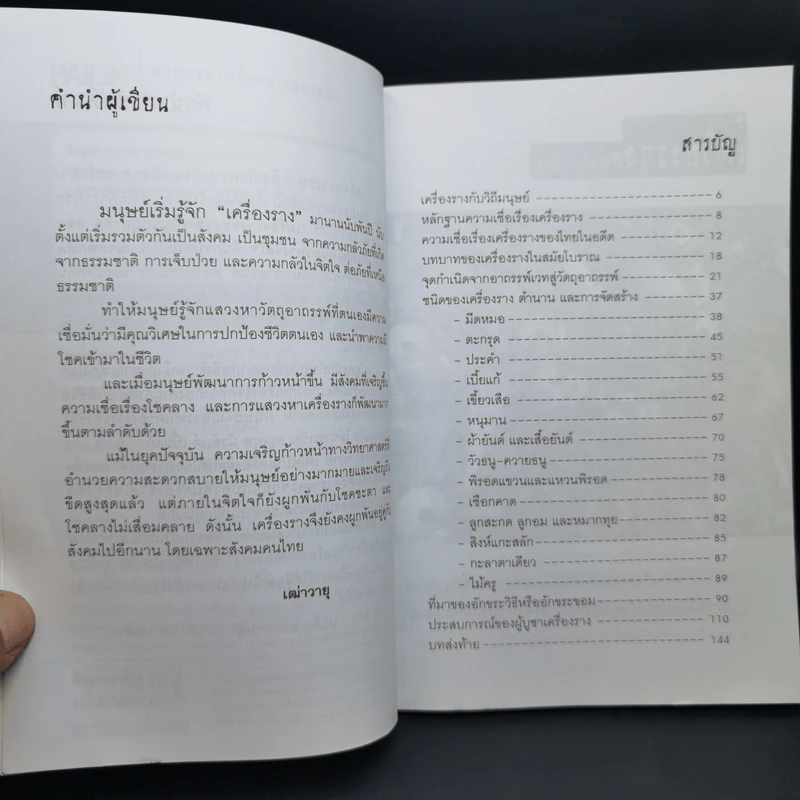 คำนำผู้เขียน
มนุษย์เริ่มรู้จัก "เครื่องราง" มานานนับพันปี นับ
ตั้งแต่เริ่มรวมตัวกันเป็นสังคม เป็นชุมชน จากความกลัวภัยที่เกิด
จากธรรมชาติ การเจ็บป่วย และความกลัวในจิตใจ ต่อภัยที่เหนือ
ธรรมชาติ
ทำให้มนุษย์รู้จักแสวงหาวัตถุอาถรรพ์ที่ตนเองมีความ
เชื่อมั่นว่ามีคุณวิเศษในการปกป้องชีวิตตนเอง และนำพาความมี
โชคเข้ามาในชีวิต
และเมื่อมนุษย์พัฒนาการก้าวหน้าขึ้น มีสังคมที่เจริญขึ้น
ความเชื่อเรื่องโชคลาง และการแสวงหาเครื่องรางก็พัฒนามาก
ขึ้นตามลำดับด้วย
แม้ในยุคปัจจุบัน ความเจริญก้าวหน้าทางวิทยาศาสตร์
อำนวยความสะดวกสบายให้มนุษย์อย่างมากมายและเจริญถึง
ขีดสูงสุดแล้ว แต่ภายในจิตใจก็ยังผูกพันกับโชคชะตา และ
โชคลางไม่เสื่อมคลาย ดังนั้น เครื่องรางจึงยังคงผูกพันอยู่คู่กับ
สังคมไปอีกนาน โดยเฉพาะสังคมคนไทย
เฒ่าวายุ
สารบัญ
เครื่องรางกับวิถีมนุษย์ 6
หลักฐานความเชื่อเรื่องเครื่องราง 8
ความเชื่อเรื่องเครื่องรางของไทยในอดีต 12
บทบาทของเครื่องรางในสมัยโบราณ 18
จุดกำเนิดจากอาถรรพ์เวทสู่วัตถุอาถรรพ์ 21
ชนิดของเครื่องราง ตำนาน และการจัดสร้าง 37
- มีดหมอ 38
- ตะกรุด 45
- ประคำ 51
- เบี้ยแก้ 55
- เขี้ยวเสือ 62
- หนุมาน 67
- ผ้ายันต์ และเสื้อยันต์ 70
- วัวธนู-ควายธนู 75
- พิรอดแขวนและแหวนพิรอด 78
- เชือกคาด 80
- ลูกสะกด ลูกอม และหมากทุย 82
- สิงห์แกะสลัก 85
- กะลาตาเดียว 87
- ไม้ครู 89
ที่มาของอักขระวิธีหรืออักขระขอม 90
ประสบการณ์ของผู้บูชาเครื่องราง 110
บทส่งท้าย 144